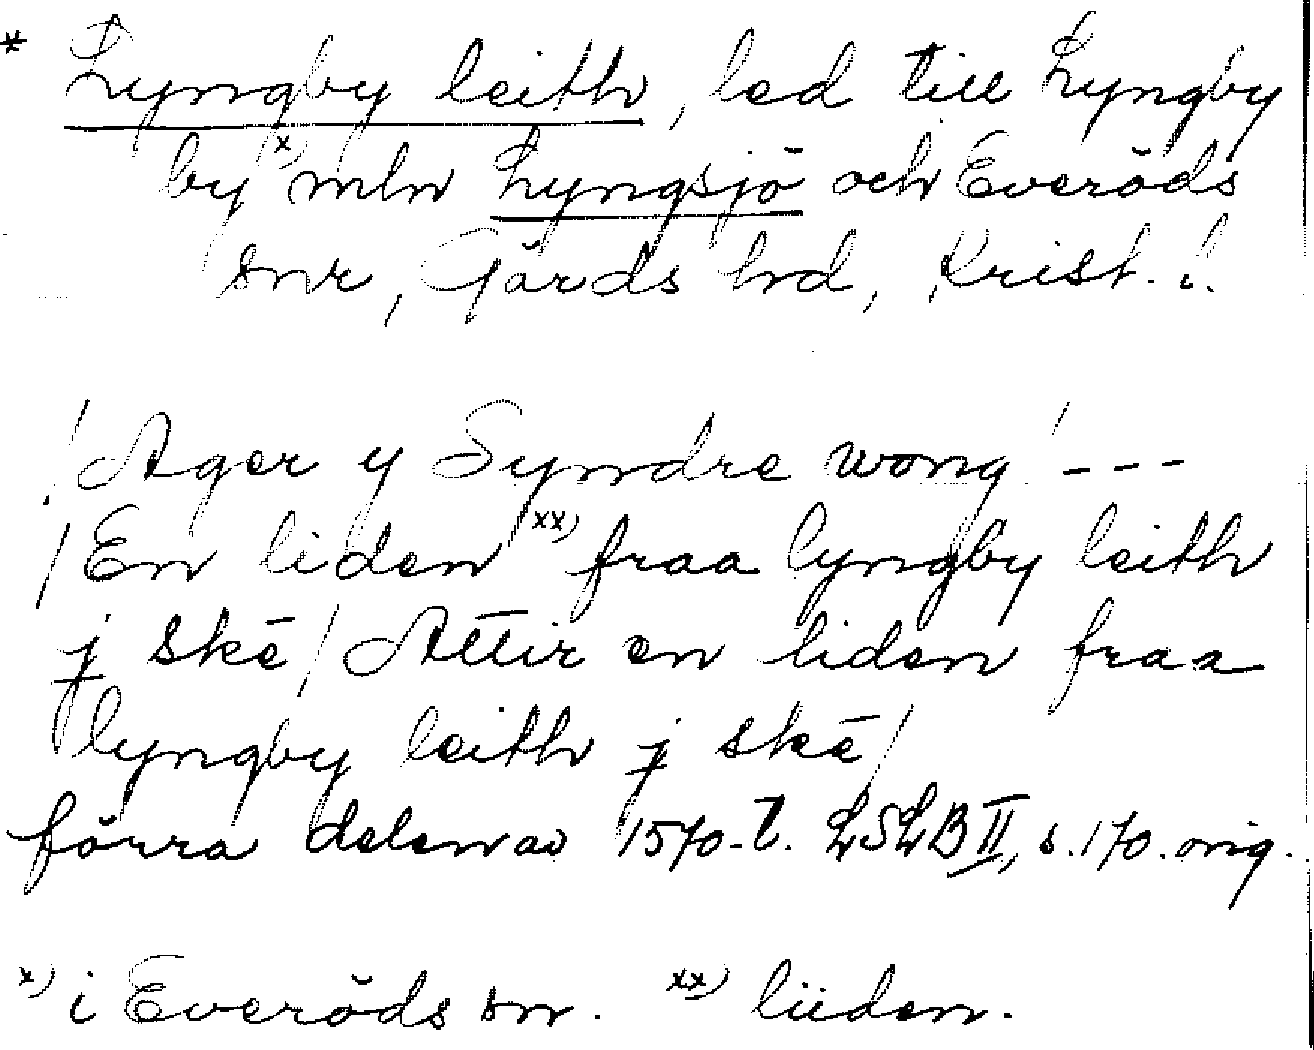 * Lyngby leith, led till Lyngby
by x) mln Lyngsjö och Everöds
snr, Gärds hd, Krist. l.
/Ager y Syndre wong/ - - -
/En liden xx) fraa lyngby leith
j skē/Attir en liden fraa
lyngby leith j skē/
förra delen av 1570-t. LSLB II, s. 170. orig.
x) i Everöds sn. xx) lüden.